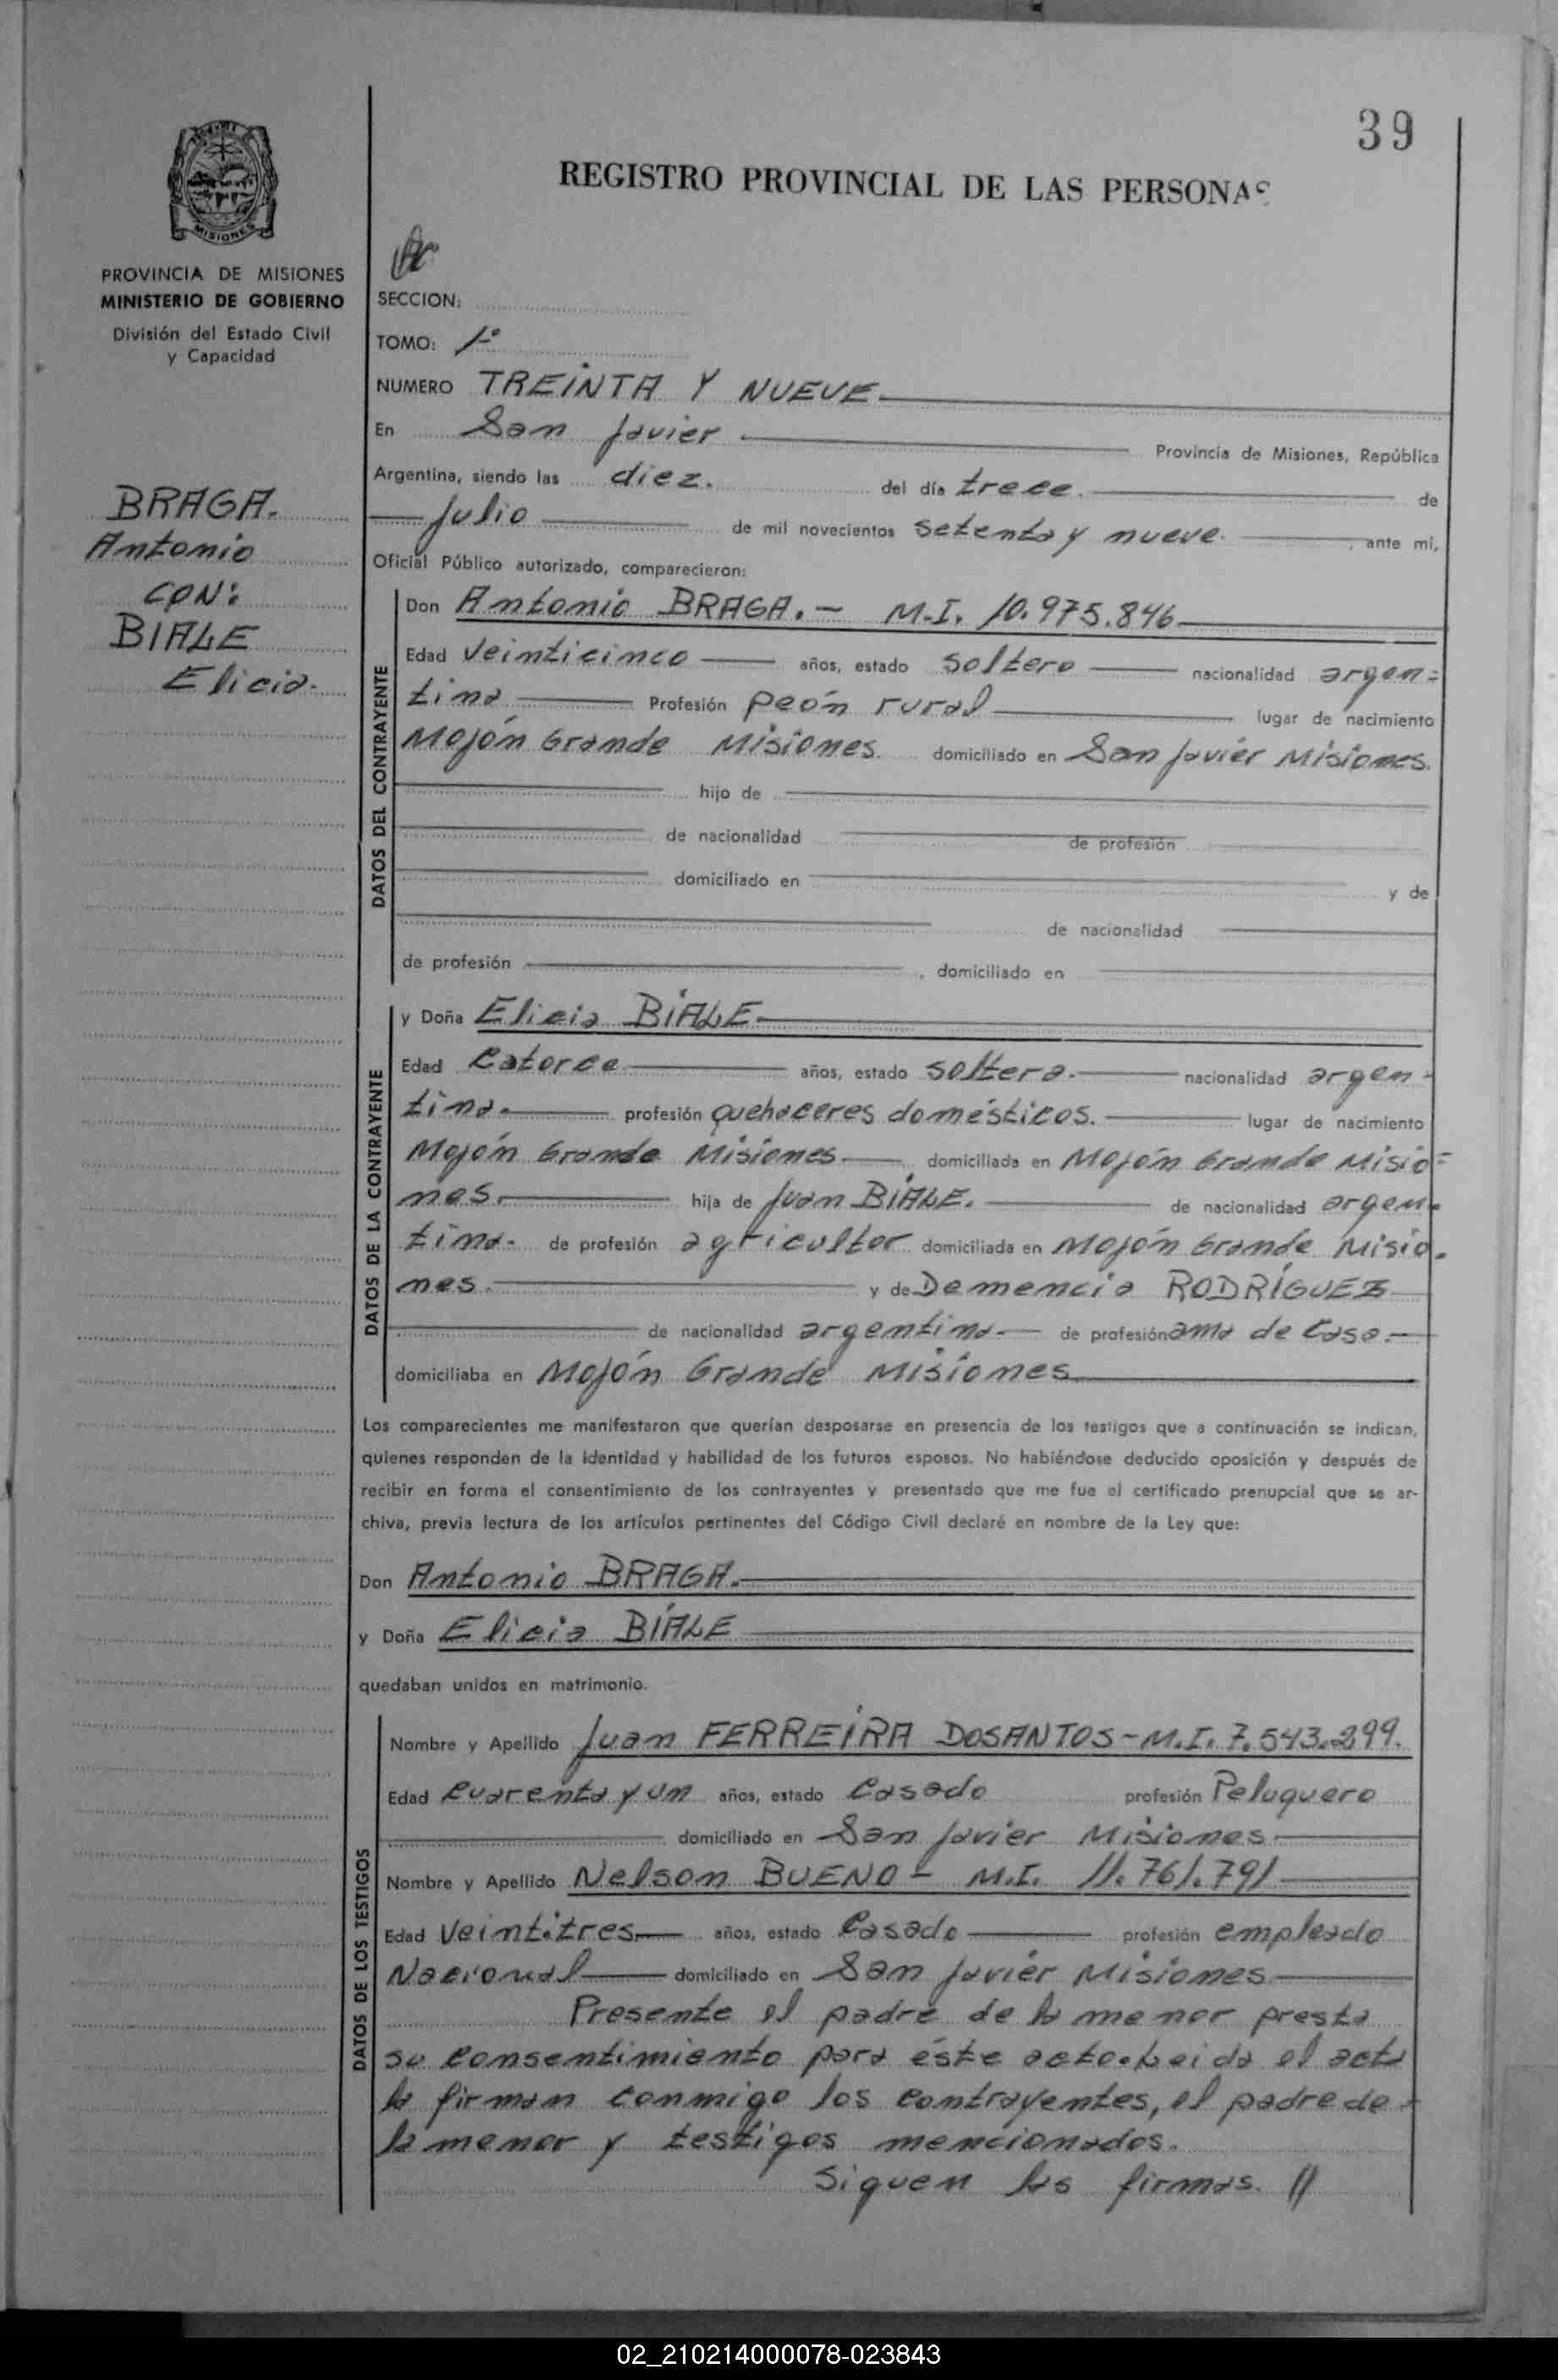 39
REGISTRO PROVINCIAL DE LAS PERSONAS
MISIONES
PROVINCIA DE MISIONES
MINISTERIO DE GOBIERNO
División del Estado Civil
y Capacidad
BRAGA.
Antonio
CON:
BIALE
Elicia.
SECCION:
TOMO: 1º
NUMERO TREINTA Y NUEVE
En San Javier Provincia de Misiones, República
Argentina, siendo las diez. del día trece. de
Julio de mil novecientos setenta y nueve. , ante mi,
Oficial Público autorizado, comparecieron:
DATOS DEL CONTRAYENTE
Don Antonio BRAGA.- M.I. 10.975.846
Edad veinticinco años, estado soltero nacionalidad argen=
tina Profesión peón rural lugar de nacimiento
Mojón Grande Misiones. domiciliado en San Javier Misiones.
hijo de
de nacionalidad de profesión
domiciliado en y de
de nacionalidad
de profesión , domiciliado en
DATOS DE LA CONTRAYENTE
y Doña Elicia BIALE
Edad catorce años, estado soltera. nacionalidad argen-
tina. profesión quehaceres domésticos. lugar de nacimiento
Mojón Grande Misiones domiciliada en Mojón Grande Misio=
nes. hija de Juan BIALE. de nacionalidad argen-
tina. de profesión agricultor domiciliada en Mojón Grande Misio-
nes. y de Demencia RODRÍGUEZ
de nacionalidad argentina. de profesión ama de casa.
domiciliaba en Mojón Grande Misiones
Los comparecientes me manifestaron que querían desposarse en presencia de los testigos que a continuación se indican,
quienes responden de la identidad y habilidad de los futuros esposos. No habiéndose deducido oposición y después de
recibir en forma el consentimiento de los contrayentes y presentado que me fue el certificado prenupcial que se ar-
chiva, previa lectura de los artículos pertinentes del Código Civil declaré en nombre de la Ley que:
Don Antonio BRAGA.
y Doña Elicia BIALE
quedaban unidos en matrimonio.
DATOS DE LOS TESTIGOS
Nombre y Apellido Juan FERREIRA DOSANTOS - M.I. 7.543.299.
Edad cuarenta y un años, estado casado profesión Peluquero
domiciliado en San Javier Misiones.
Nombre y Apellido Nelson BUENO - M.I. 11.761.791
Edad veintitres años, estado casado profesión empleado
Nacional domiciliado en San Javier Misiones
Presente el padre de la menor presta
su consentimiento para éste acto. Leida el acta
la firman conmigo los contrayentes, el padre de
la menor y testigos mencionados.
Siguen las firmas. //
02_210214000078-023843